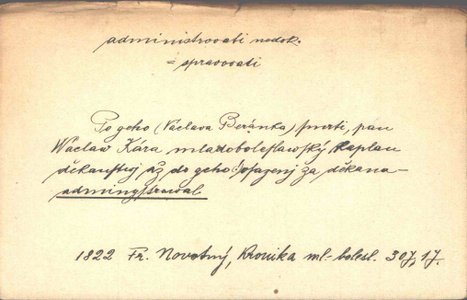 administrovati nedok.
= spravovati
Po geho (Václava Beránka) smrti, pan
Waclaw Kára mladoboleslawský kaplan
děkanstwj až do geho osazenj za děkana
administrowal
1822 Fr. Novotný, Kronika ml.-bolesl. 307, 17.